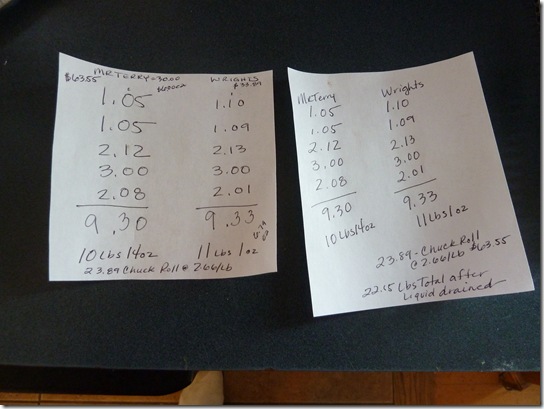 MrTerry=30.00 Wrights
$63.55 $33.89
1.05 1.10
1.05 1.09
2.12 2.13
3.00 3.00
2.08 2.01
9.30 9.33
10 Lbs 14oz 11 Lbs 1oz
23.89 Chuck Roll @ 2.66/Lb
MrTerry Wrights
1.05 1.10
1.05 1.09
2.12 2.13
3.00 3.00
2.08 2.01
9.30 9.33
10 Lbs 14oz 11 Lbs 1oz
23.89 - Chuck Roll
@ 2.66/Lb $63.55
22.15 Lbs Total after
Liquid drained